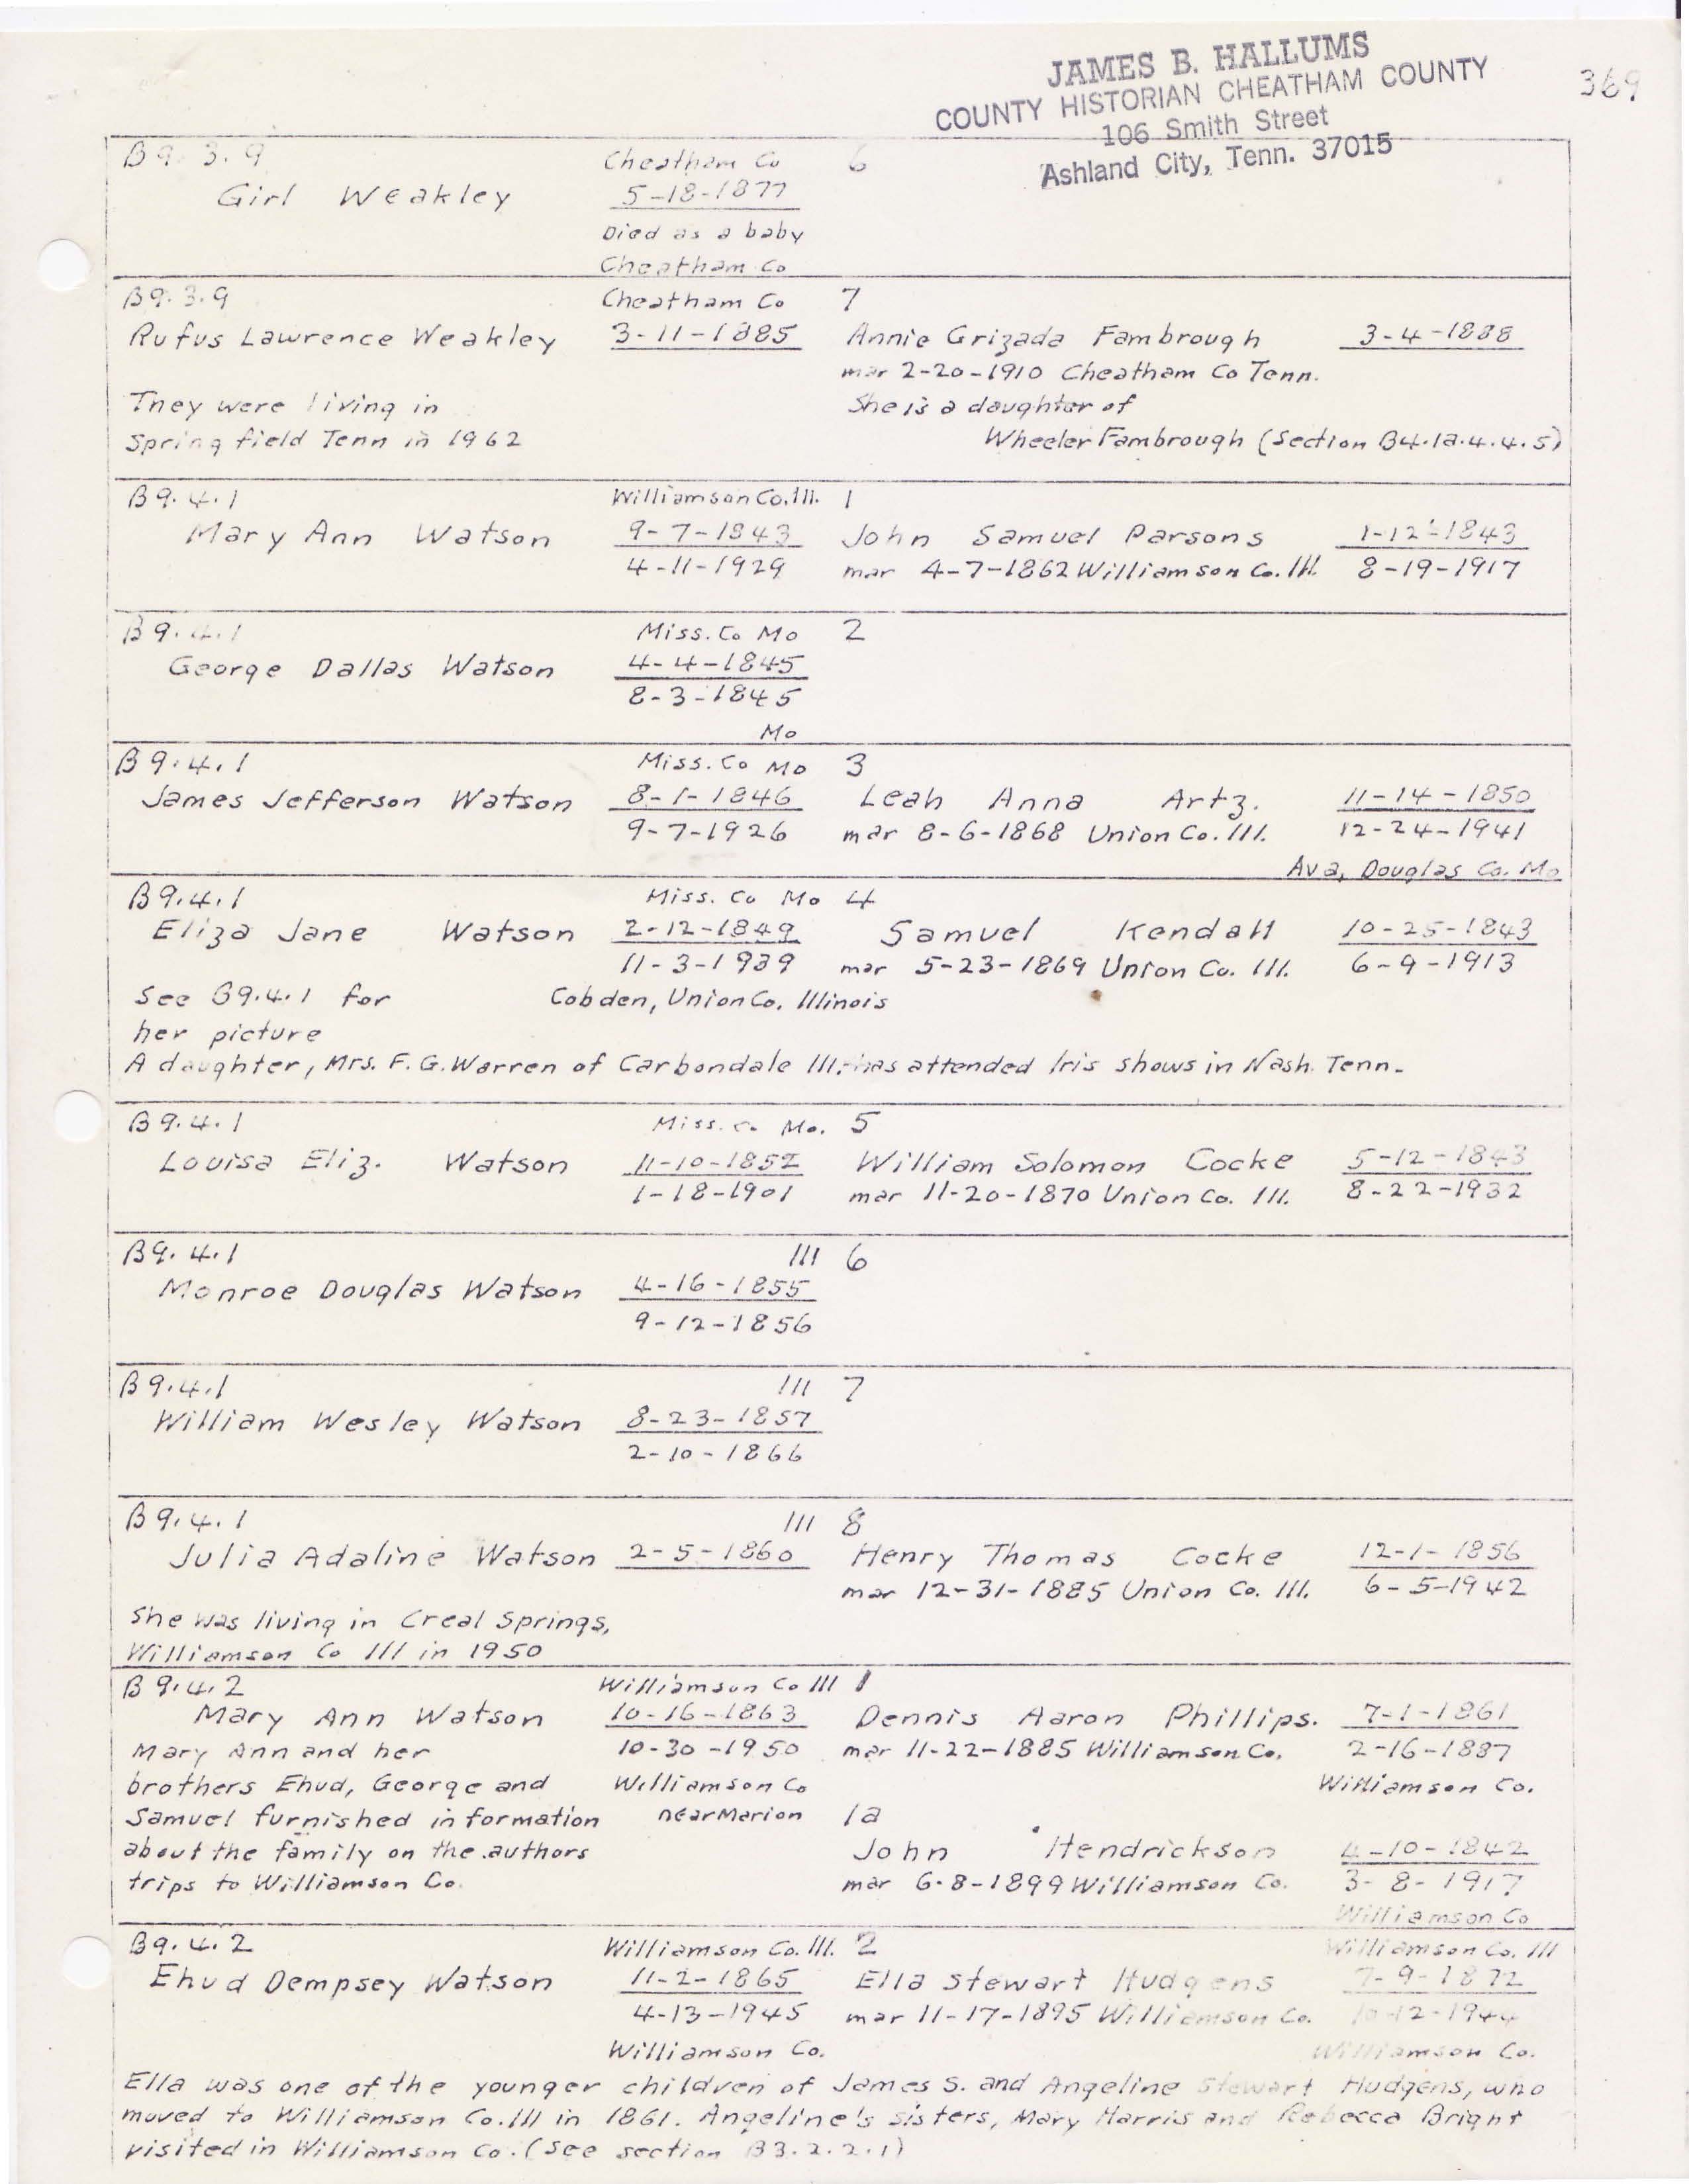 JAMES B. HALLUMS
COUNTY HISTORIAN CHEATHAM COUNTY
106 Smith Street
Ashland City, Tenn. 37015
369
B9.3.9 Cheatham Co 6
Girl Weakley 5-18-1877
Died as a baby
Cheatham Co
B9.3.9 Cheatham Co 7
Rufus Lawrence Weakley 3-11-1885 Annie Grizada Fambrough 3-4-1888
mar 2-20-1910 Cheatham Co Tenn.
They were living in She is a daughter of
Springfield Tenn in 1962 Wheeler Fambrough (Section B4.1a.4.4.5)
B9.4.1 Williamson Co. Ill. 1
Mary Ann Watson 9-7-1843 John Samuel Parsons 1-12-1843
4-11-1929 mar 4-7-1862 Williamson Co. Ill. 8-19-1917
B9.4.1 Miss. Co Mo 2
George Dallas Watson 4-4-1845
8-3-1845
Mo
B9.4.1 Miss. Co Mo 3
James Jefferson Watson 8-1-1846 Leah Anna Artz. 11-14-1850
9-7-1926 mar 8-6-1868 Union Co. Ill. 12-24-1941
Ava, Douglas Co. Mo
B9.4.1 Miss. Co Mo 4
Eliza Jane Watson 2-12-1849 Samuel Kendall 10-25-1843
11-3-1939 mar 5-23-1869 Union Co. Ill. 6-9-1913
See B9.4.1 for Cobden, Union Co. Illinois
her picture
A daughter, Mrs. F. G. Warren of Carbondale Ill. has attended Iris shows in Nash. Tenn.
B9.4.1 Miss. Co Mo. 5
Louisa Eliz. Watson 11-10-1852 William Solomon Cocke 5-12-1843
1-18-1901 mar 11-20-1870 Union Co. Ill. 8-22-1932
B9.4.1 Ill 6
Monroe Douglas Watson 4-16-1855
9-12-1856
B9.4.1 Ill 7
William Wesley Watson 8-23-1857
2-10-1866
B9.4.1 Ill 8
Julia Adaline Watson 2-5-1860 Henry Thomas Cocke 12-1-1856
mar 12-31-1885 Union Co. Ill. 6-5-1942
She was living in Creal Springs,
Williamson Co Ill in 1950
B9.4.2 Williamson Co Ill 1
Mary Ann Watson 10-16-1863 Dennis Aaron Phillips. 7-1-1861
Mary Ann and her 10-30-1950 mar 11-22-1885 Williamson Co. 2-16-1887
brothers Ehud, George and Williamson Co Williamson Co.
Samuel furnished information near Marion 1a
about the family on the authors John Hendrickson 4-10-1842
trips to Williamson Co. mar 6-8-1899 Williamson Co. 3-8-1917
Williamson Co
B9.4.2 Williamson Co. Ill. 2 Williamson Co. Ill
Ehud Dempsey Watson 11-2-1865 Ella Stewart Hudgens 7-9-1872
4-13-1945 mar 11-17-1895 Williamson Co. 10-12-1944
Williamson Co. Williamson Co.
Ella was one of the younger children of James S. and Angeline Stewart Hudgens, who
moved to Williamson Co. Ill in 1861. Angeline's sisters, Mary Harris and Rebecca Bright
visited in Williamson Co. (See section B3.2.2.1)